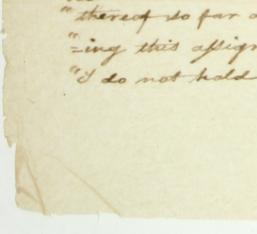 "thereof so far
"=ing this assign
"I do not hold